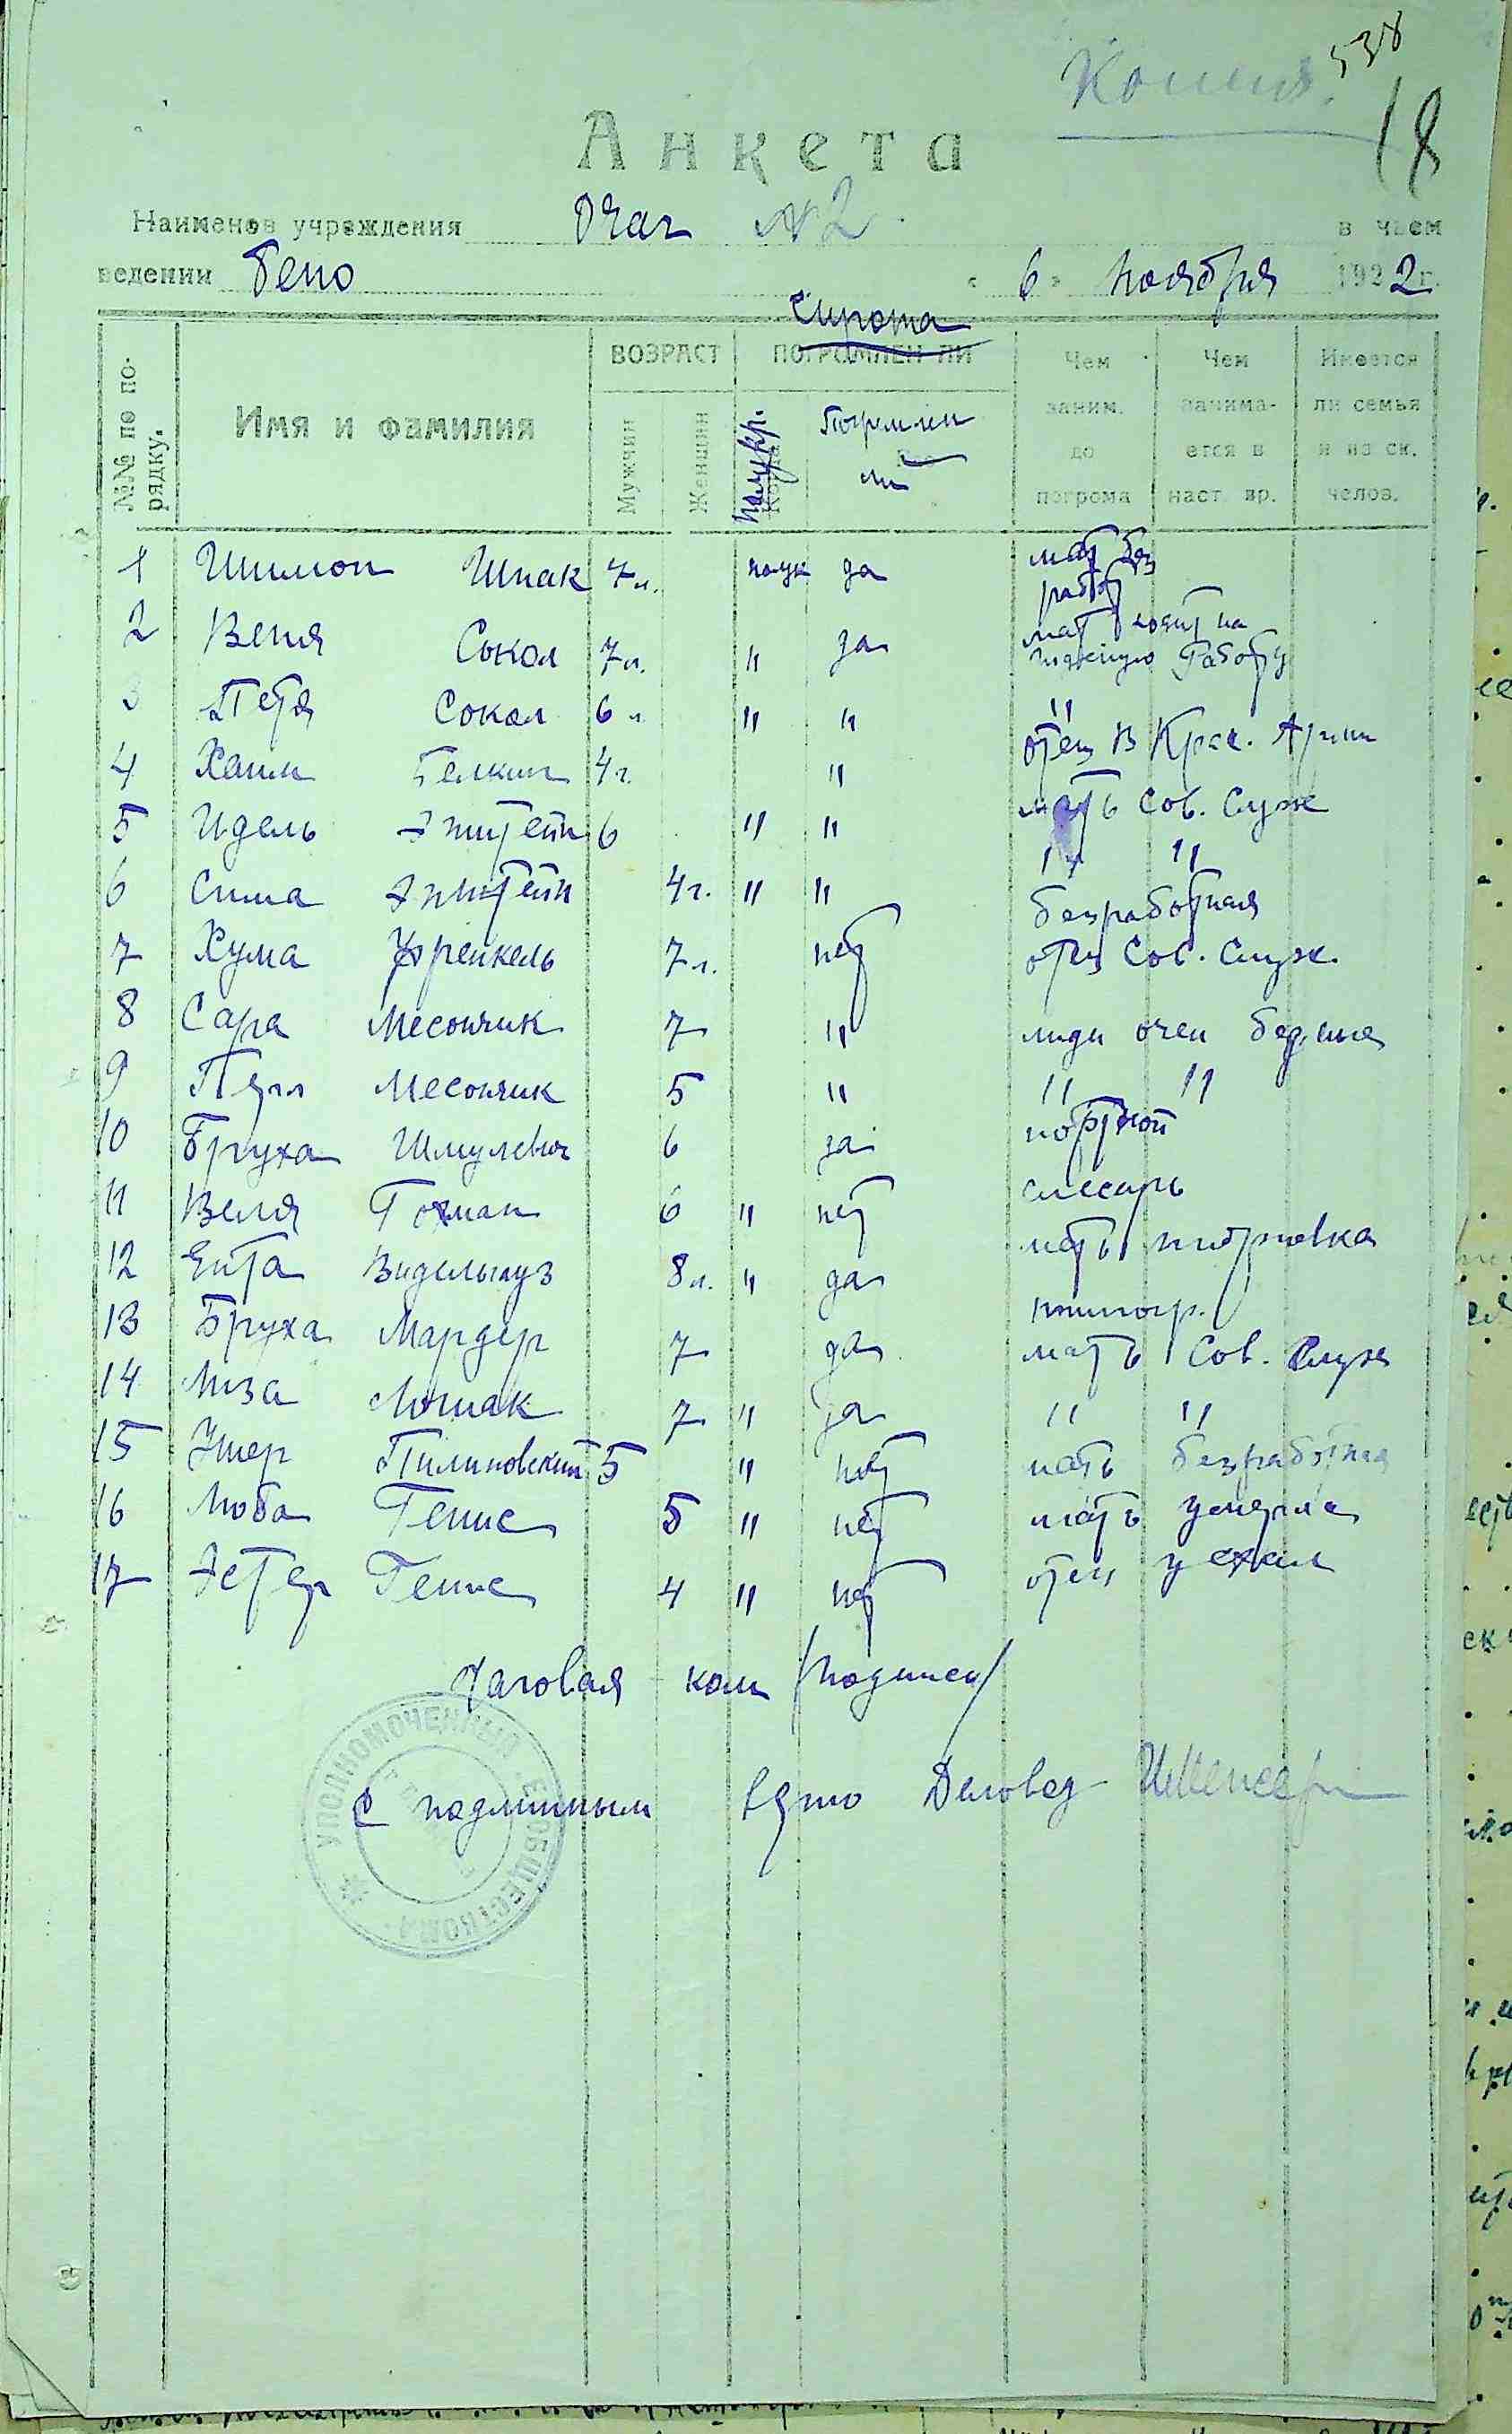 Копия. 538
18
Анкета
Наименов учреждения Очаг №2 в чьем
ведении Гено « 6 » ноября 1922 г.
Сирота
№№ по по-рядку. Имя и фамилия ВОЗРАСТ ПОГРОМЛЕН ЛИ Чем заним. до погрома Чем занима-ется в наст вр. Имеется ли семья и из ск. челов.
Мужчин Женщин полукр. Погромлен ли
1 Шимон Шпак 7 л. полук да мать без работ
2 Веня Сокол 7 л. " да мат ходит на
тяжелую работу
3 Петя Сокол 6 л " " "
4 Хаим Гелкин 4 г. " отец в Крас. Армии
5 Идель Эпштейн 6 " " мать Сов. Служ
6 Сима Эпштейн 4 г. " " " "
7 Хума Френкель 7 л. нет безработная
отец Сов. Служ.
8 Сара Месончик 7 " люди очен бедные
9 Перл Месончик 5 " " "
10 Бруха Шмулевич 6 да портной
11 Веля Гохман 6 " нет слесарь
12 Ента Видельгауз 8 л. " да мать торговка
13 Бруха Мардер 7 да типогр.
14 Лиза Лошак 7 " да мать Сов. Служ
" "
15 Ушер Пилиновский 5 " нет мать безработная
16 Люба Генис 5 " нет мать умерла
17 Эстер Генис 4 " нет отец уехал
Очаговая ком /подписи/
С подлинным верно Деловод
УПОЛНОМОЧЕННЫЙ ЕВОБЩЕСТКОМА